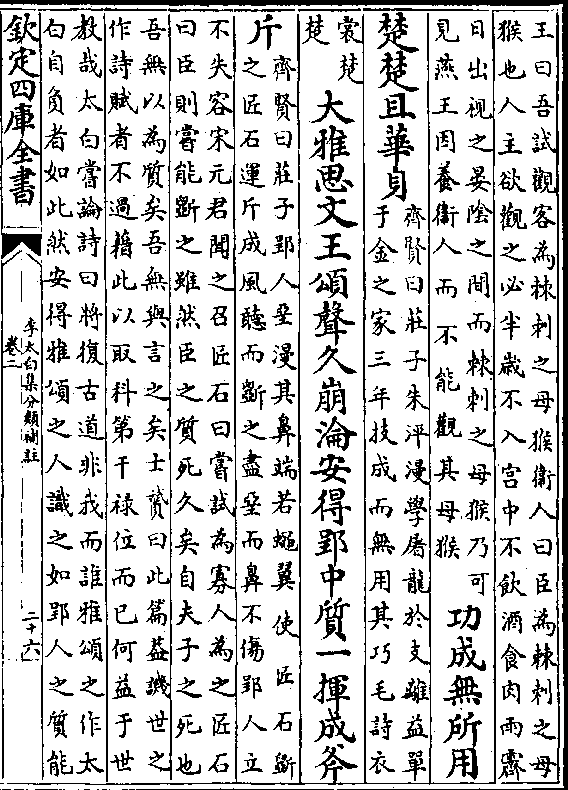 王曰吾試觀客為棘刺之母猴衛人曰臣為棘刺之母
猴也人主欲觀之必半歳不入宫中不飲酒食肉雨霽
日出視之晏隂之間而棘刺之母猴乃可
見燕王因養衞人而不能觀其母猴
功成無所用
楚楚且華身
齊賢曰莊子朱泙漫學屠龍於支離益單
千金之家三年技成而無用其巧毛詩衣
裳楚
楚
大雅思文王頌聲久崩淪安得郢中質一揮成斧
斤
齊賢曰莊子郢人堊漫其鼻端若蠅翼使匠石斵
之匠石運斤成風聽而斵之盡堊而鼻不傷郢人立
不失容宋元君聞之召匠石曰嘗試為寡人為之匠石
曰臣則嘗能斵之雖然臣之質死久矣自夫子之死也
吾無以為質矣吾無與言之矣士贇曰此篇葢譏世之
作詩賦者不過藉此以取科第干禄位而已何益于世
教哉太白嘗論詩曰將復古道非我而誰雅頌之作太
白自負者如此然安得雅頌之人識之如郢人之質能
欽定四庫全書
李太白集分類補註
卷二
二十六